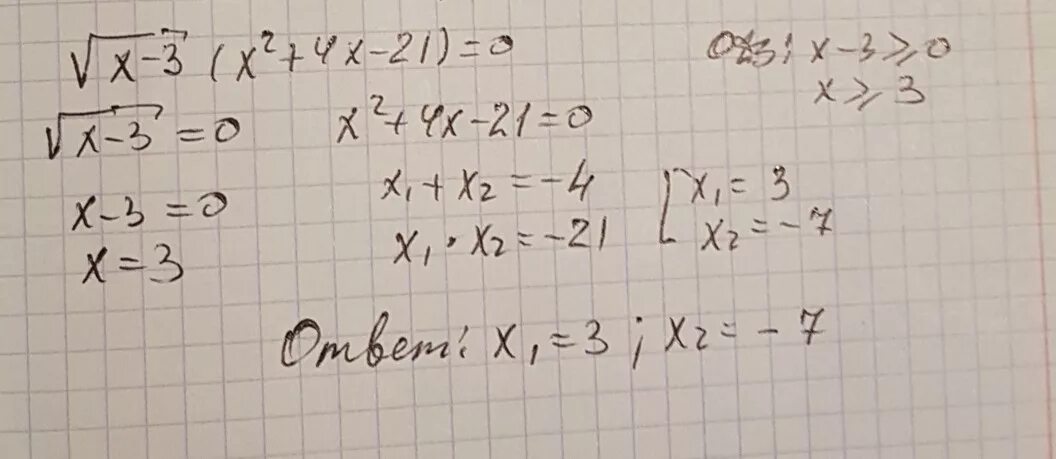 √x-3 (x²+4x-21)=0
ОДЗ: x-3⩾0
x⩾3
√x-3 =0
x²+4x-21=0
x-3=0
x=3
x₁+x₂=-4
x₁·x₂=-21
[x₁=3
x₂=-7
Ответ: x₁=3; x₂=-7